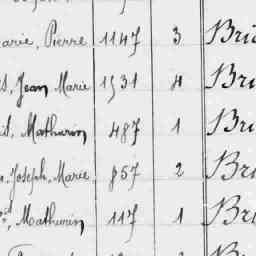 arie, Pierre 1147 3 Bri
s, Jean Marie 1531 4 Bri
it, Mathurin 487 1 Bri
, Joseph, Marie 857 2 Bri
, Mathurin 117 1 Bri